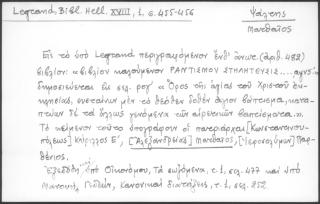 Legrand, Bibl. Hell. XVIII, 1, σ. 455-456
Ψάλτης
Ματθαῖος
Εἰς τὸ ὑπὸ Legrand περιγραφόμενον ἐνθ' ἀνωτ. (ἀριθ. 482)
βιβλίον: «Βιβλίον καλούμενον ΡΑΝΤΙΣΜΟΥ ΣΤΗΛΙΤΕΥΣΙΣ....
δημοσιεύεται εἰς σελ. «Ὅρος τῆς ἁγίας τοῦ Χριστοῦ ἐκ-
κλησίας, συνιστῶν μὲν τὸ θεόθεν δοθὲν ἅγιον βάπτισμα, κατα-
πτύων δὲ τὰ ἄλλως γενόμενα τῶν αἱρετικῶν βαπτίσματα.».
Τὸ κείμενον τοῦτο ὑπογράφουν οἱ πατριάρχαι [Κωνσταντινου-
πόλεως] Κύριλλος Ε΄, [Ἀλεξανδρείας] Ματθαῖος, [Ἱεροσολύμων] Παρ-
θένιος.
Ἐξεδόθη ὑπὸ Οἰκονόμου, Τὰ σωζόμενα, τ. 1, σελ. 477 καὶ ὑπὸ
Μανουὴλ Γεδεών, Κανονικαὶ διατάξεις, τ. 1, σελ. 252